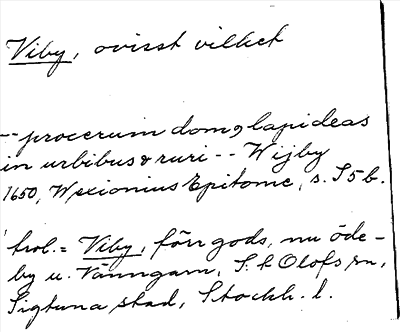 Viby, ovisst vilket
-- procerum domꝯ lapideas
in urbibus & ruri -- Wijby
1650, Wexionius Epitome, s. S5b.
trol. = Viby, förr gods, nu öde-
by u. Vänngarn, S:t Olofs sn,
Sigtuna stad, Stockh. l.